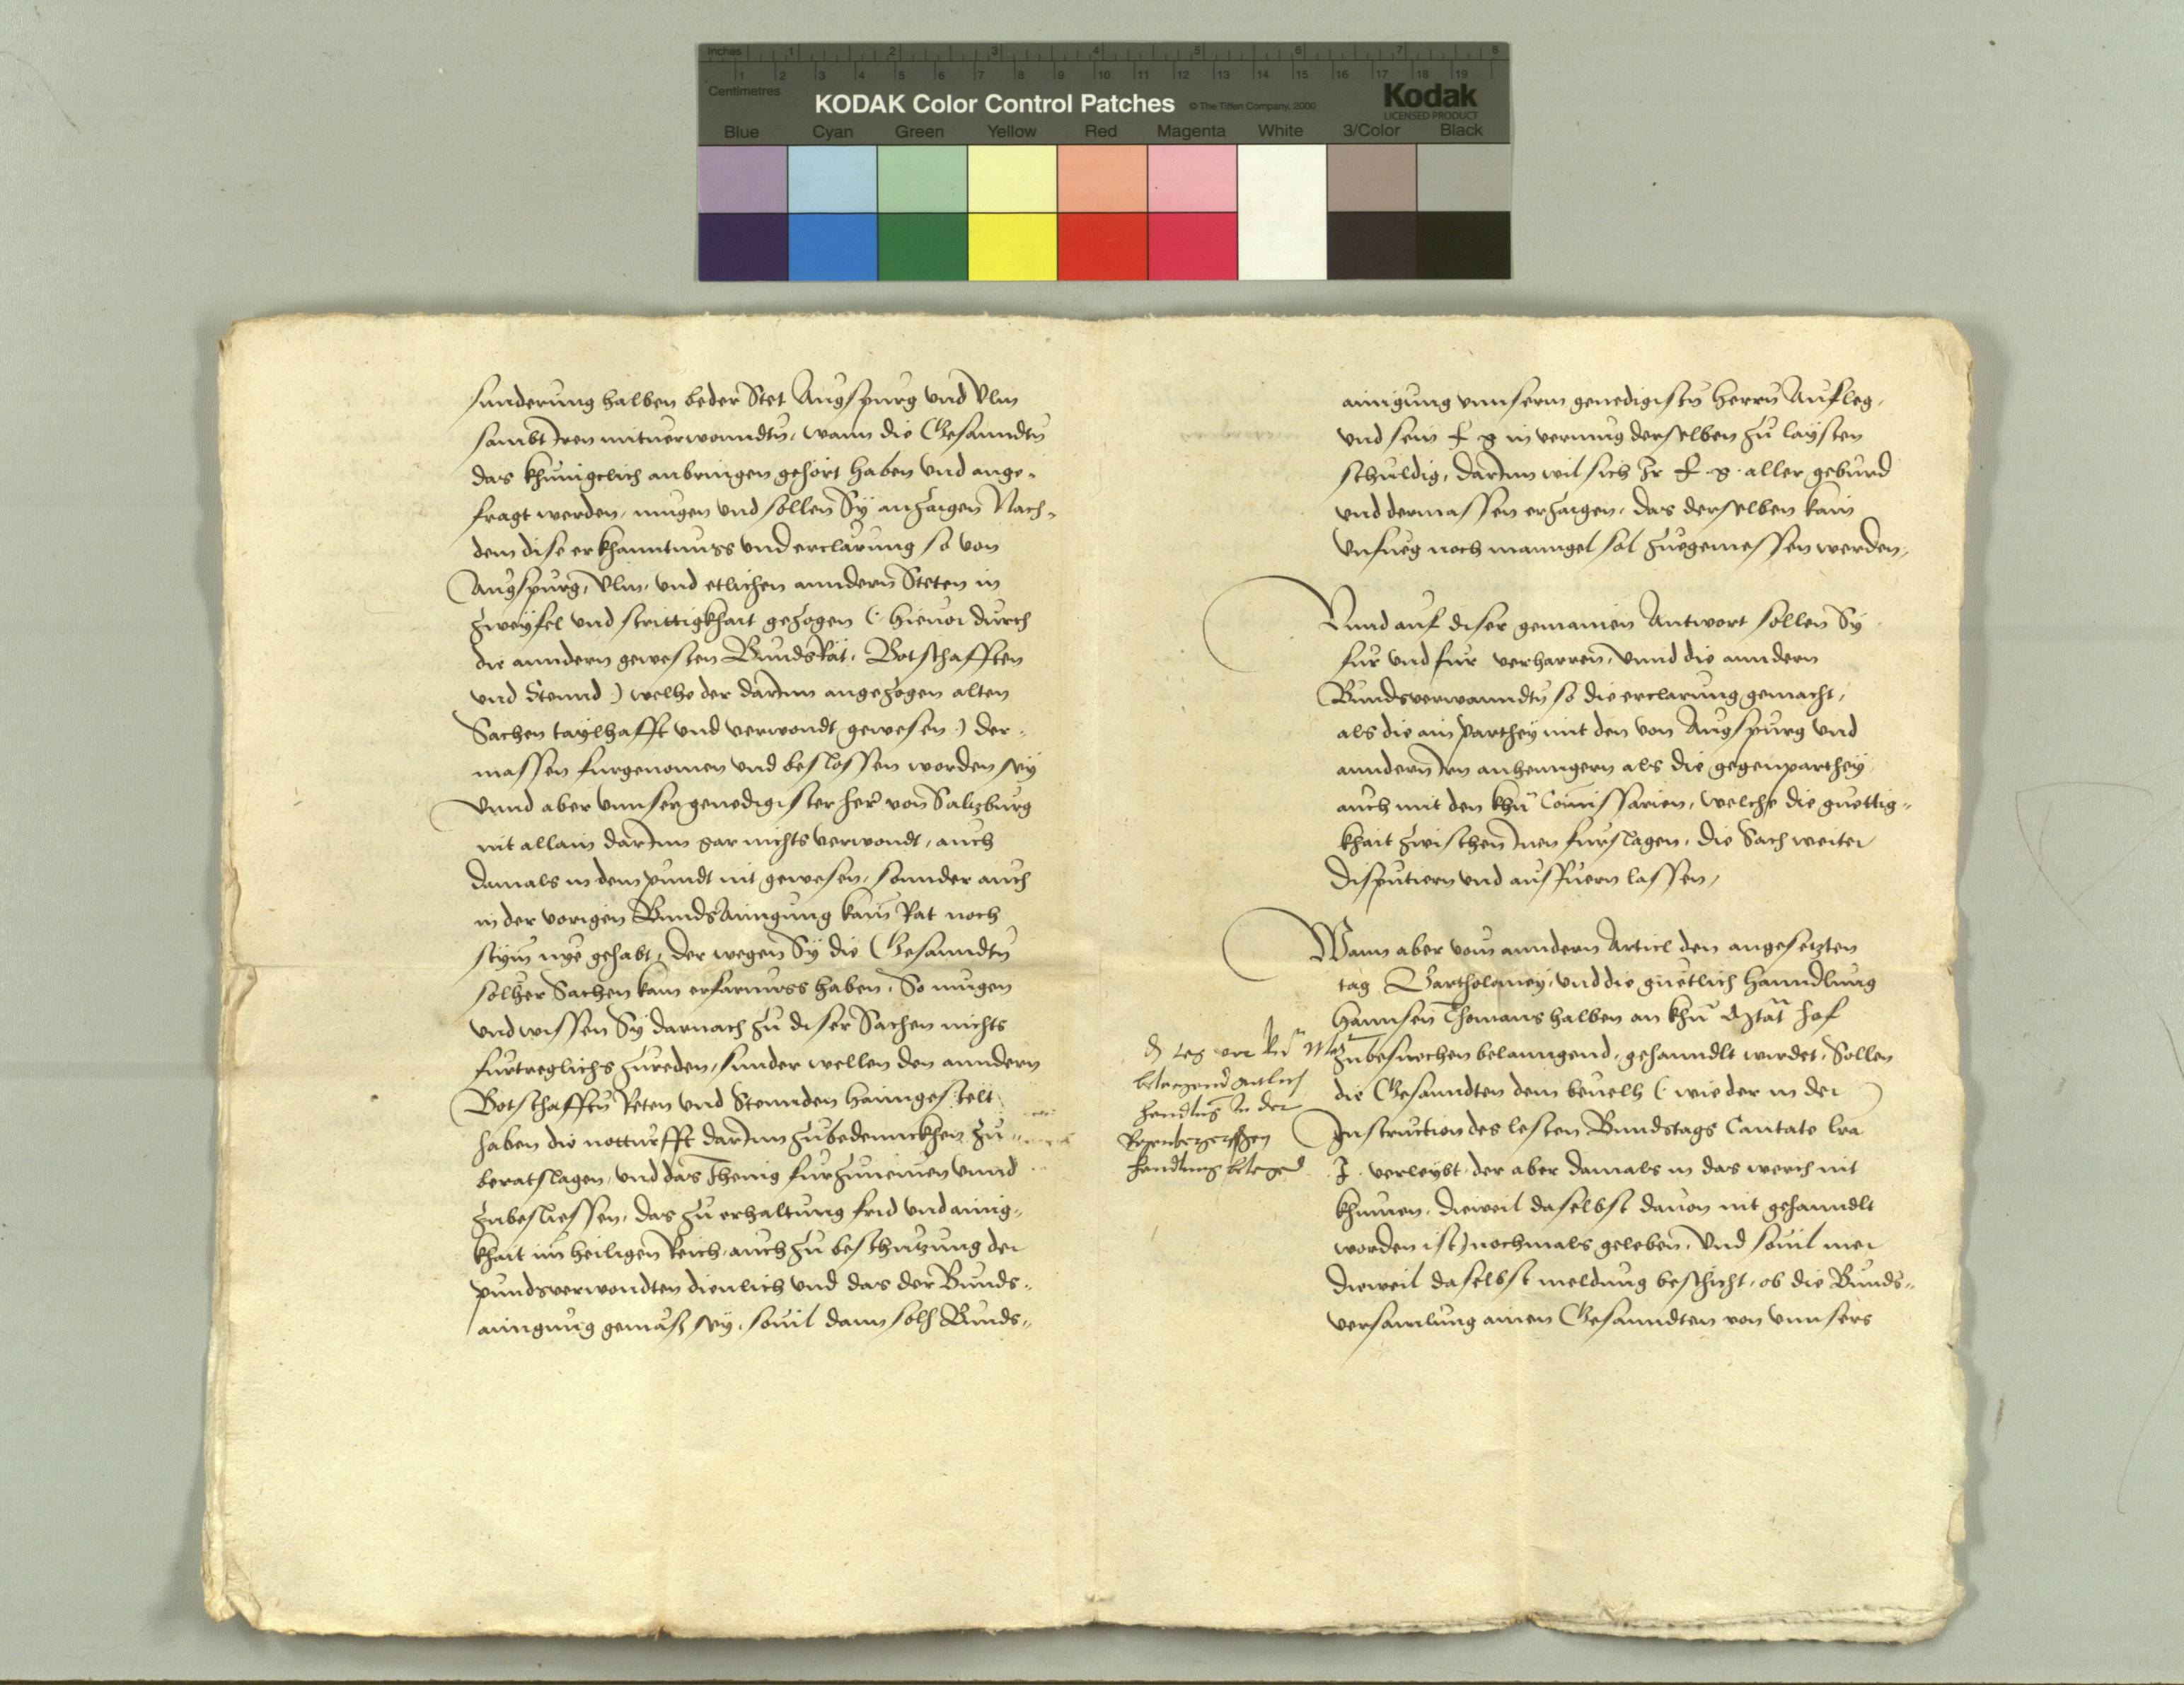 Inches 1 2 3 4 5 6 7 8
1 2 3 4 5 6 7 8 9 10 11 12 13 14 15 16 17 18 19
Centimetres
KODAK Color Control Patches © The Tiffen Company, 2000 Kodak
LICENSED PRODUCT
Blue Cyan Green Yellow Red Magenta White 3/Color Black
sunderung halben beder Stet Augspurg und Ulm
sambt Iren mituerwonndtn, wann die Gesanndtn
das khunigclich anbringen gehört haben und ange-
fragt werden, mugen und sollen Sÿ anzaigen Nach-
dem dise erkhanntnuss und erclarung so von
Augspurg, Ulm, und etlichen anndern Steten in
zweÿfel und strittigkhait gezogen (: hieuor durch
die anndern gewesten BundsRät, Botschafften
und Stennd :) welhe der darInn angezogen alten
Sachen taÿlhafft und verwondt gewesen :) der-
massen furgenomen und beslossen worden seÿ
Unnd aber unnser genedigister her von Saltzburg
nit allain darInn gar nichts verwondt, auch
damals in dem pundt nit gewesen, sonnder auch
in der vorigen BundsAinigung kain Rat noch
stÿm nÿe gehabt, der wegen Sÿ die Gesanndtn
solher Sachen kain erfarnuss haben, So mugen
und wissen Sÿ darnach zu diser Sachen nichts
furtreglichs zureden, sunder wellen den anndern
Botschafftn Reten und Stennden haimgestelt
haben die notturfft darInn zubedennckhen zu-
beratslagen, und das Ihenig furzunemen unnd
zubesliessen, das zu erhaltung frid und ainig-
khait im heiligen Reich, auch zu beschutzung der
pundsverwondten dienlich und das der Bunds-
ainigung gemäß seÿ, souil dann solh Bunds-
ainigung unnserm genedigistn herrn Aufleg,
und sein f g in vermug derselben zu laÿsten
schuldig, darInn wil sich Ir f g. aller geburd
und dermassen erzaigen, das derselben kain
Unfueg noch manngel sol zuegemessen werden,
Unnd auf diser gemainen Antwort sollen Sÿ
fur und fur verharren, Unnd die anndern
Bundsverwonndtn so die erclarung gemacht,
als die ain Parthey mit den von Augspurg und
anndern Irn anhenngern als die gegenparthey
auch mit den khn Comissarien, welche die guettig-
khait zwischen Inen furslagen, die Sach weiter
disputiern und ausfuern lassen,
Wann aber vom anndern Articl den angesetzten
tag Bartholomey, und die guetlich Hanndlung
Hannsen Thomans halben an khn Mtat hof
zubesuechen belanngend, gehanndlt wirdet, Sollen
die Gesanndten dem beuelh (: wie der in der
Instruction des lesten Bundstags Cantate lra
I. verleÿbt, der aber damals in das werch nit
khumen, dieweil daselbst dauon nit gehanndlt
worden ist) nochmals geleben, Und souil mer
dieweil daselbst meldung beschicht, ob die Bunds-
versamlung ainen Gesanndten von unnsers
tag vor kn Mat
guetlich
handlung In der
Rosenbergerischen
handlung